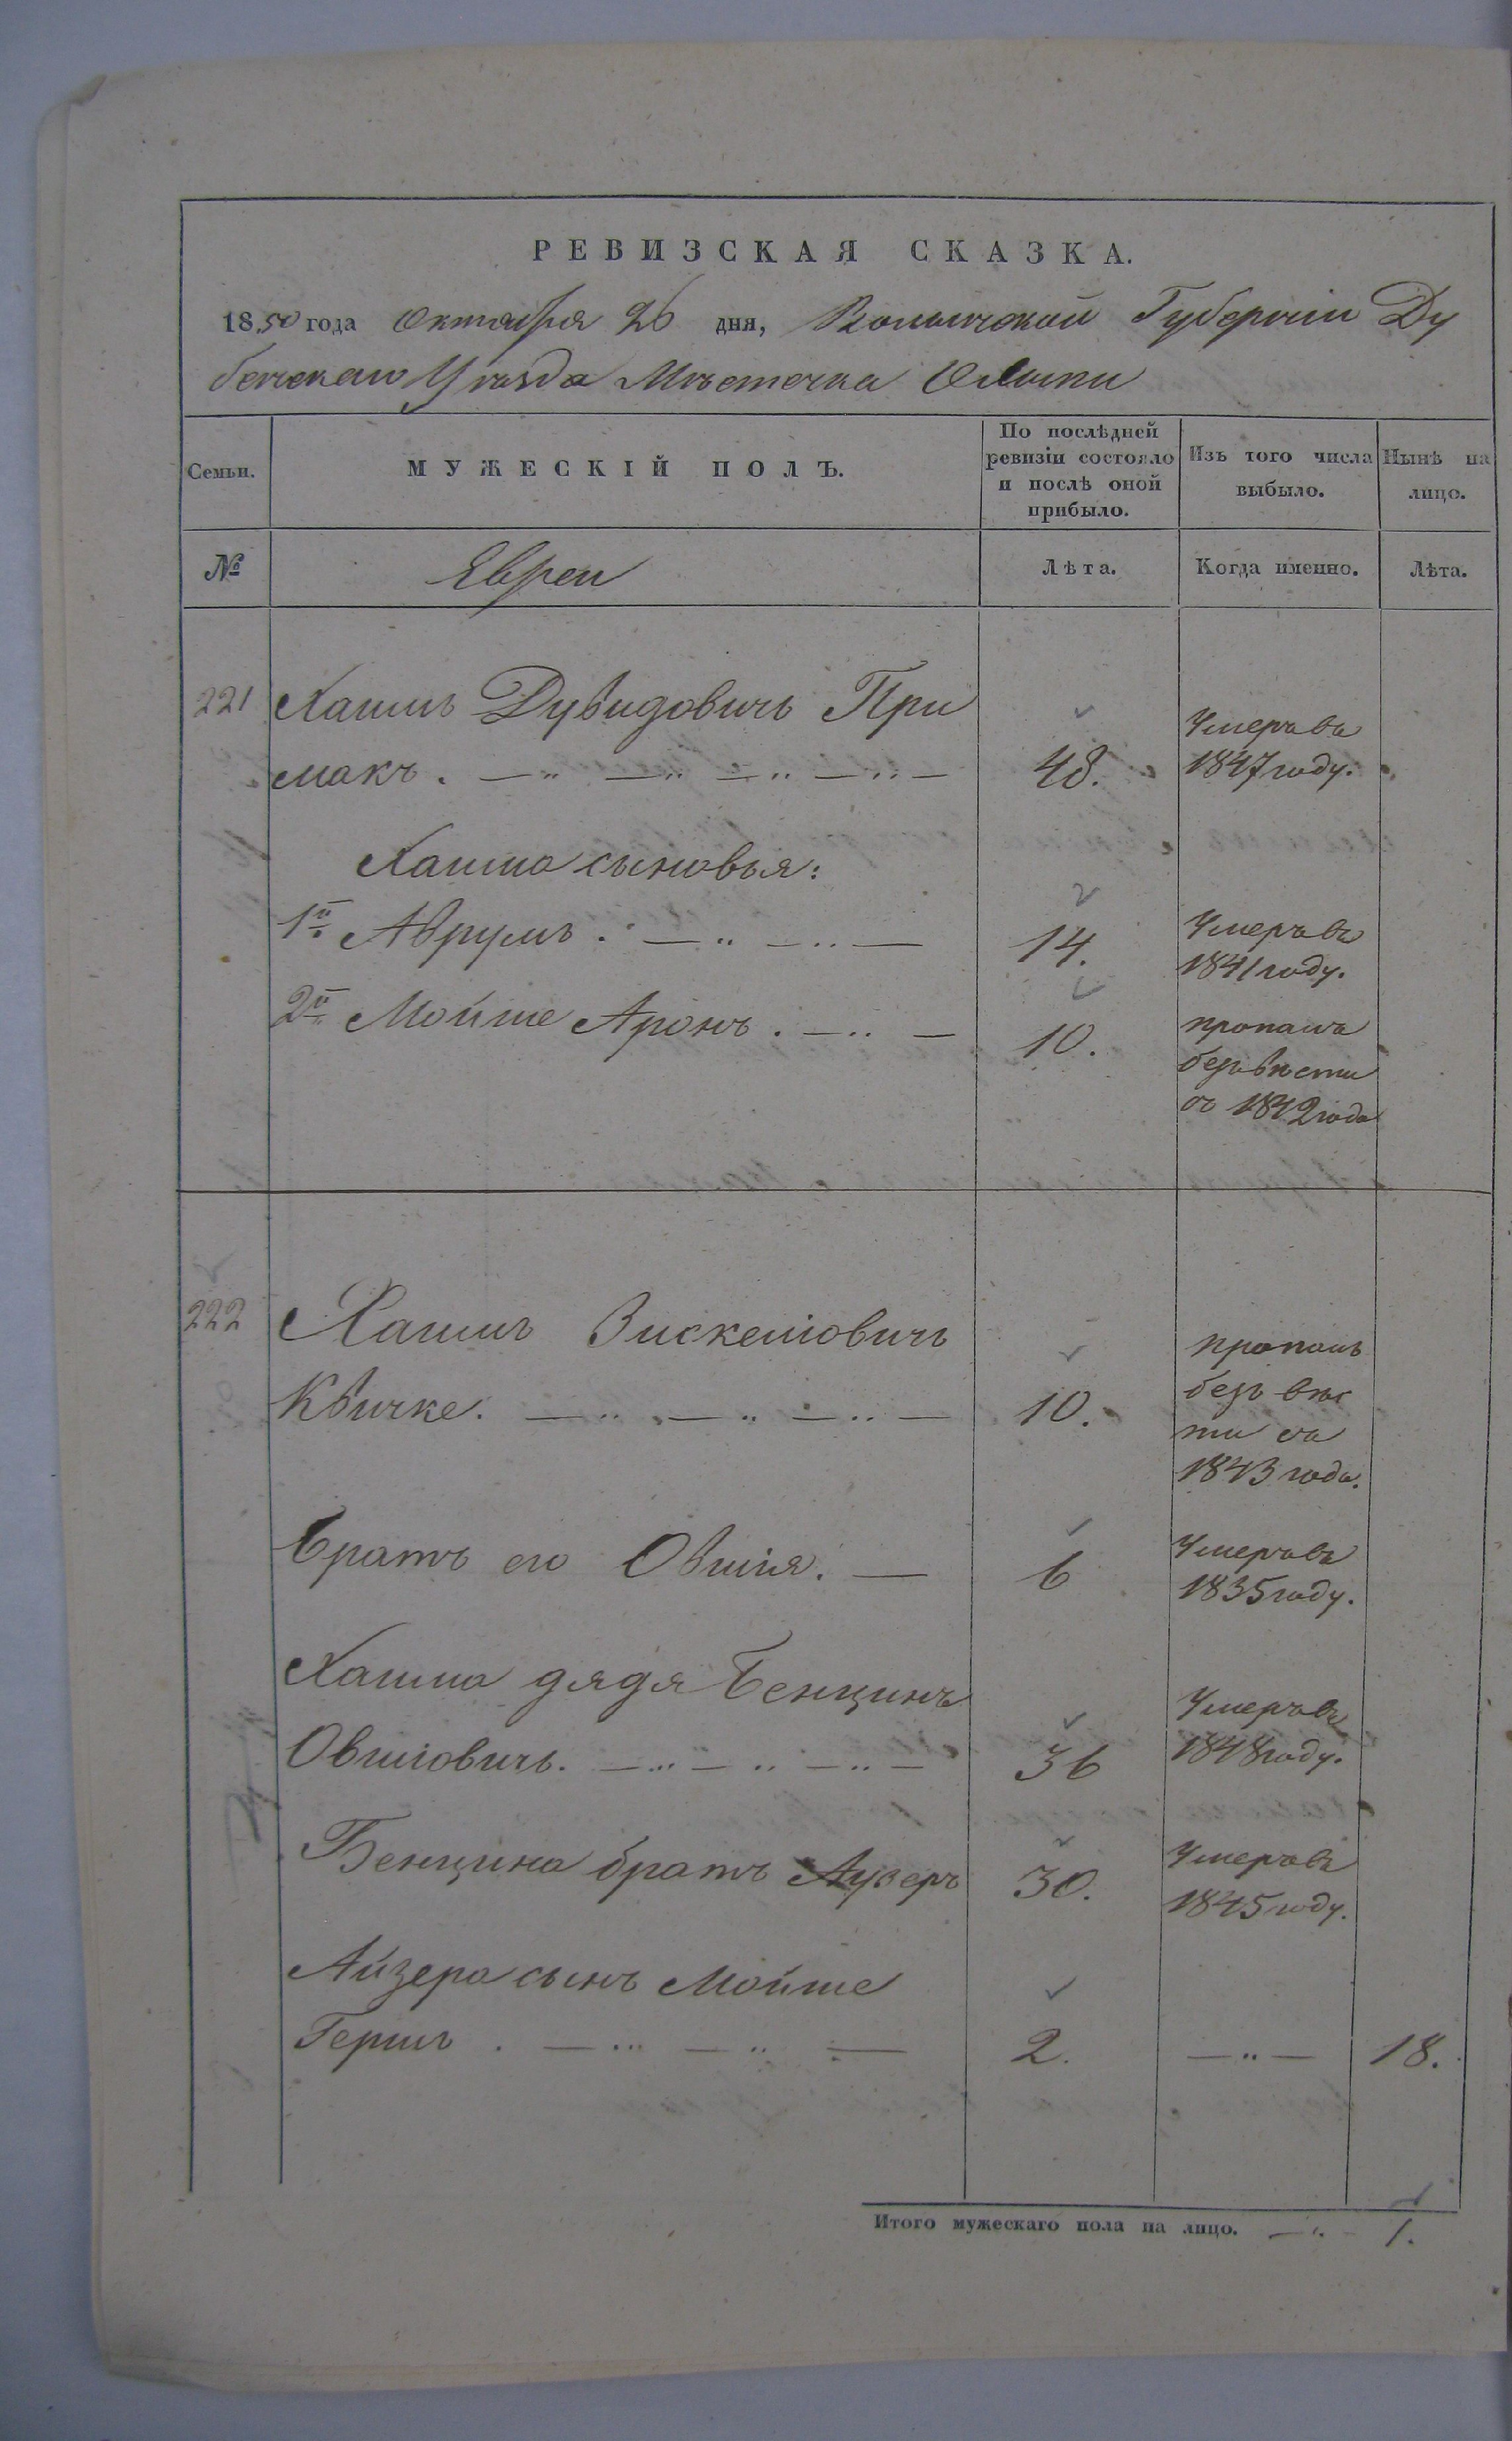 РЕВИЗСКАЯ СКАЗКА.
1850 года Октября 26 дня, Волынской Губерніи Ду
бенскаго Уѣзда Мѣстечка Олыки
Семьи.
МУЖЕСКІЙ ПОЛЪ.
По послѣдней
ревизіи состояло
и послѣ оной
прибыло.
Изъ того числа
выбыло.
Нынѣ на
лицо.
№
Евреи
Лѣта.
Когда именно.
Лѣта.
221 Хаимъ Дувидовичъ При
макъ. 48. Умеръ въ
1847 году.
Хаима сыновья:
1й Аврумъ. 14. Умеръ въ
1841 году.
2й Мойше Аронъ. 10. пропалъ
безъ вѣсти
съ 1842 года
222 Хаимъ Зискеліовичъ
Квичке. 10. пропалъ
безъ вѣс
ти съ
1843 года.
Братъ его Овшія. 6 Умеръ въ
1835 году.
Хаима дядя Бенцинъ
Овшіовичъ. 36 Умеръ въ
1848 году.
Бенцина братъ Аузеръ 30. Умеръ въ
1845 году.
Айзера сынъ Мойше
Гершъ. 2. 18.
Итого мужескаго пола на лицо. 1.